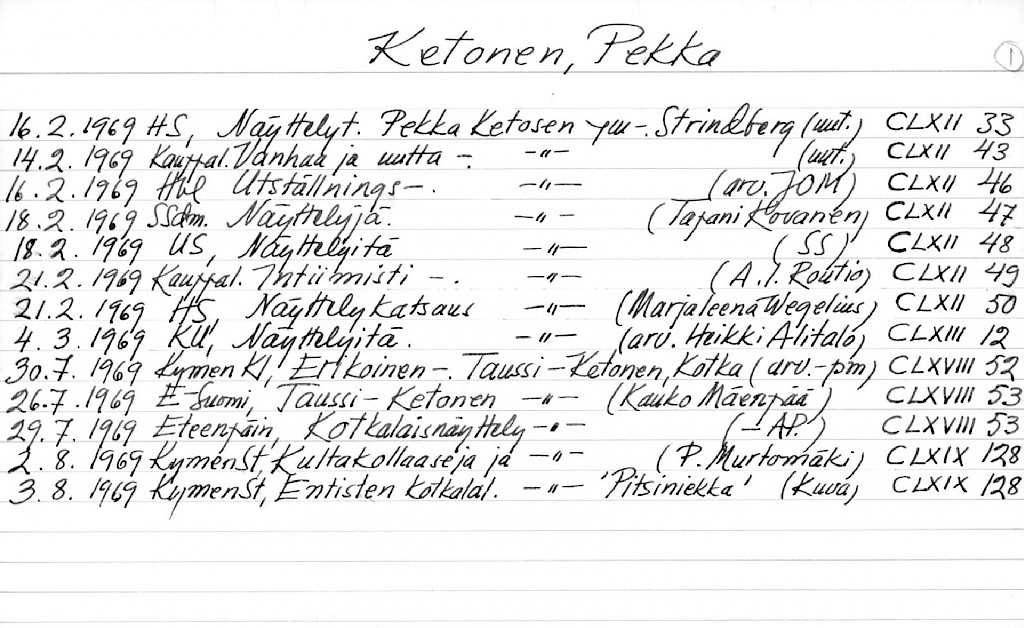 Ketonen, Pekka
1
16.2.1969 HS, Näyttelyt. Pekka Ketosen ym-. Strindberg (uut.) CLXII 33
14.2.1969 Kauppal. Vanhaa ja uutta -. -"- (uut.) CLXII 43
16.2.1969 Hbl Utställnings-. -"- (arv. JOM) CLXII 46
18.2.1969 SSdm. Näyttelyjä. -"- (Tapani Kovanen) CLXII 47
18.2.1969 US, Näyttelyitä -"- (SS) CLXII 48
21.2.1969 Kauppal. Intiimisti -. -"- (A.I. Routio) CLXII 49
21.2.1969 HS Näyttelykatsaus -"- (Marjaleena Wegelius) CLXII 50
4.3.1969 KU, Näyttelyitä. -"- (arv. Heikki Alitalo) CLXIII 12
30.7.1969 Kymen Kl, Erikoinen -. Taussi-Ketonen, Kotka (arv.-pm) CLXVIII 52
26.7.1969 E-Suomi, Taussi-Ketonen -"- (Kauko Mäenpää) CLXVIII 53
29.7.1969 Eteenpäin, Kotkalaisnäyttely -"- (-AP.) CLXVIII 53
2.8.1969 KymenSt, Kultakollaaseja ja -"- (P. Murtomäki) CLXIX 128
3.8.1969 KymenSt, Entisten kotkalal. -"- 'Pitsiniekka' (kuva) CLXIX 128